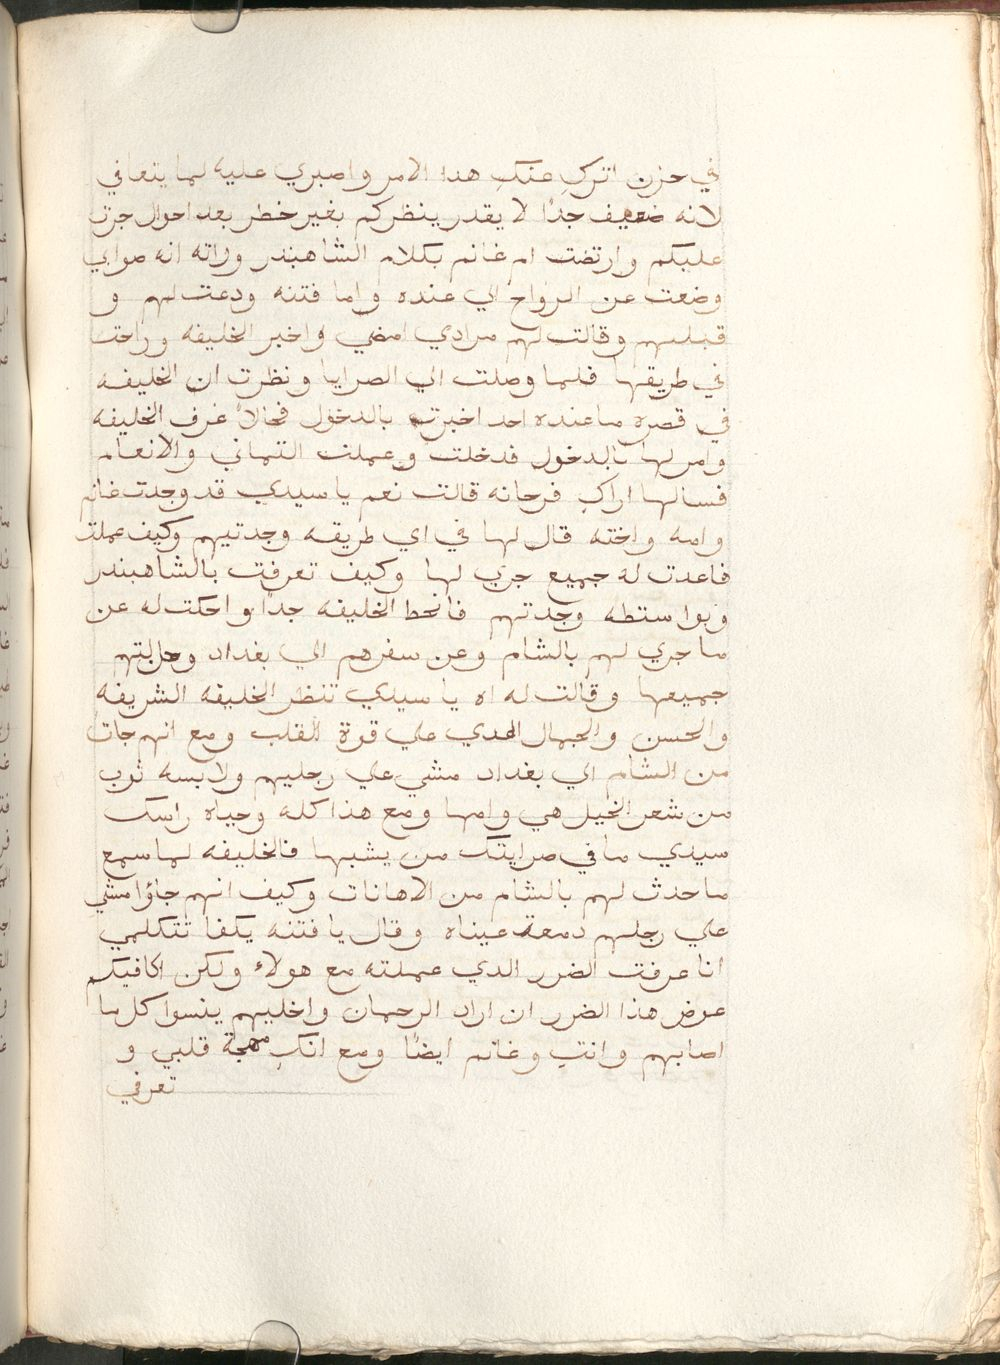 في حزن اتركِ عنكِ هدا الامر واصبري عليه لما يتعافي
لانه ضعيف جدًا لا يقدر ينظركم بغير خطر بعد احوال جرت
عليكم وارتضت ام غانم بكلام الشاهبندر وراته انه صوابي
وضعت عن الرواح الي عنده واما فتنه ودعت لهم و
قبلتهم وقالت لهم مرادي امضي واخبر الخليفه وراحت
في طريقها فلما وصلت الي الصرايا ونظرت ان الخليفه
في قصره ما عنده احد اخبرته بالدخول فحالاً عرف الخليفه
وامر لها بالدخول فدخلت وعملت التماني والانعام
فسالها اراكِ فرحانه قالت نعم يا سيدي قد وجدت غانم
وامه واخته قال لها في اي طريقه وجدتيهم وكيف عملت
فاعدت له جميع جري لها وكيف تعرفت بالشاهبندر
وبواستطه وجدتهم فانحط الخليفه جدًا واحكت له عن
ما جري لهم بالشام وعن سفرهم الي بغداد وحالتهم
جميعها وقالت له اه يا سيدي تنظر الخليفه الشريفه
والحسن والجمال الدي علي قوة القلب ومع انهم جات
من الشام الي بغداد مشي علي رجليهم ولابسه ثوب
من شعر الخيل هي وامها ومع هذا كله وحياه راسك
سيدي ما في صرايتك من يشبهها فالخليفه لما سمع
ما حدث لهم بالشام من الاهانات وكيف انهم جاؤا مشي
علي رجلهم دمعة عيناه وقال يا فتنه يكفا تتكلمي
انا عرفت الضرر الدي عملته مع هولاء ولكن اكافيكم
عوض هذا الضرر ان اراد الرحمان واخليهم ينسوا كل ما
اصابهم وانتِ وغانم ايضًا ومع انكِ مهجة قلبي و
تعرفي